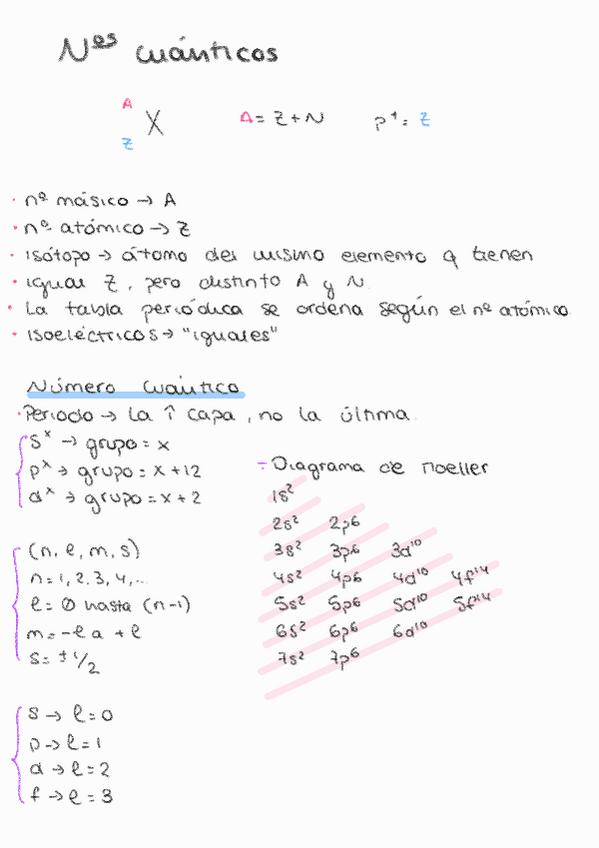 Nos cuánticos
A
Z X A = Z + N p+ = Z
· nº másico → A
· nº atómico → Z
· Isótopo → átomo del mismo elemento q tienen
· igual Z, pero distinto A y N.
· La tabla periódica se ordena según el nº atómico.
· Isoeléctricos → "iguales"
Número Cuántico
· Periodo → La ↑ capa, no la última.
sˣ → grupo = x
pˣ → grupo = x + 12
dˣ → grupo = x + 2
(n, l, m, s)
n = 1, 2, 3, 4, ...
l = 0 hasta (n-1)
m = -l a +l
s = ± 1/2
s → l = 0
p → l = 1
d → l = 2
f → l = 3
- Diagrama de Moeller
1s²
2s² 2p⁶
3s² 3p⁶ 3d¹⁰
4s² 4p⁶ 4d¹⁰ 4f¹⁴
5s² 5p⁶ 5d¹⁰ 5f¹⁴
6s² 6p⁶ 6d¹⁰
7s² 7p⁶